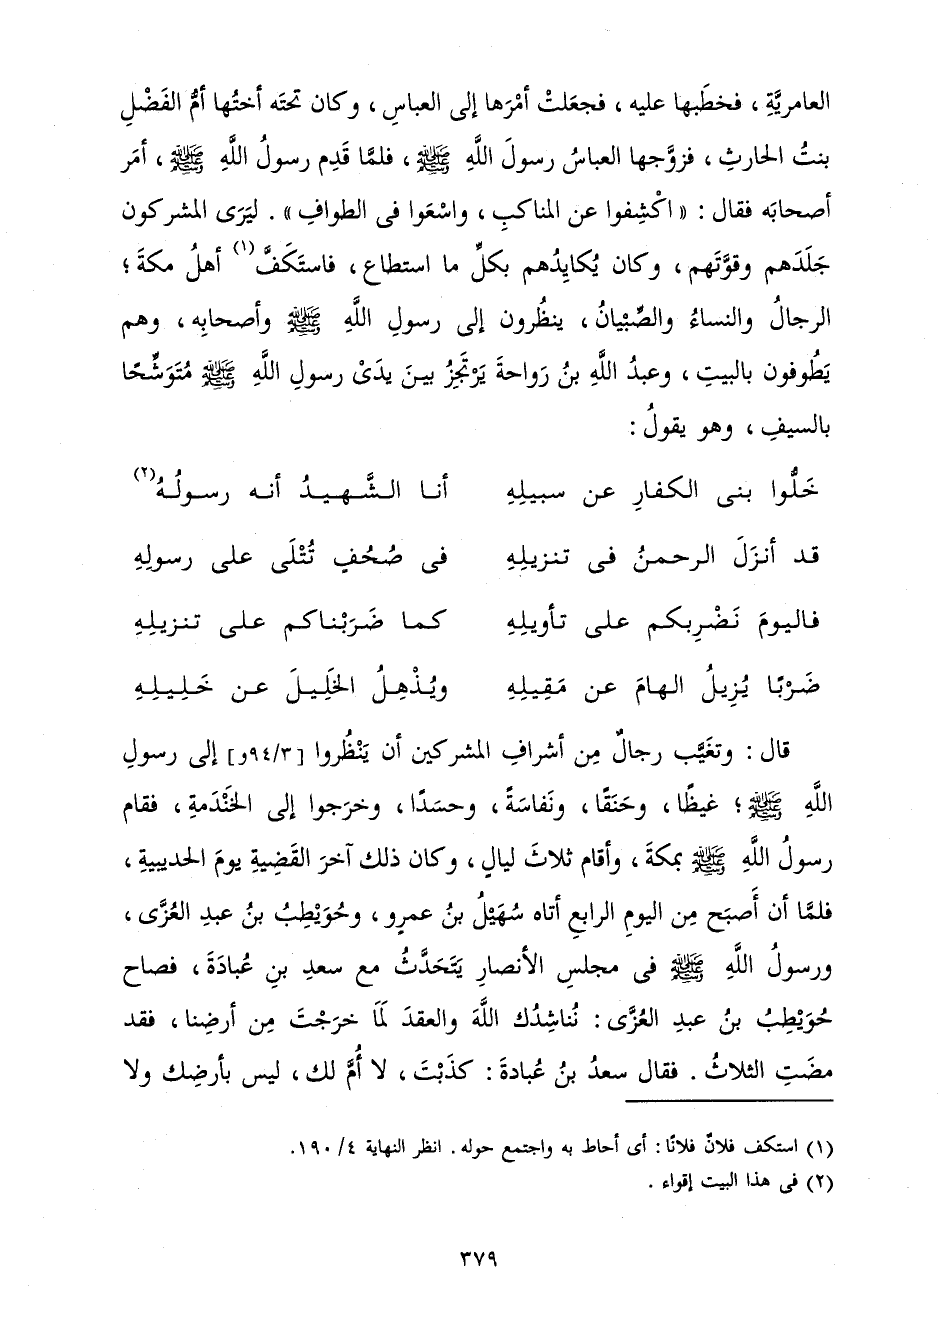 العامريَّةِ ، فخطَبها عليه ، فجعَلتْ أمْرَها إلى العباسِ ، وكان تحتَه أختُها أمُّ الفَضْلِ
بنتُ الحارثِ ، فزوَّجها العباسُ رسولَ اللَّهِ ﷺ ، فلمَّا قَدِم رسولُ اللَّهِ ﷺ ، أمَر
أصحابَه فقال : « اكْشِفوا عن المناكبِ ، واسْعَوا فى الطوافِ » . ليَرَى المشركون
جَلَدَهم وقوَّتَهم ، وكان يُكايِدُهم بكلِّ ما استطاع ، فاستَكَفَّ(١) أهلُ مكةَ ؛
الرجالُ والنساءُ والصِّبْيانُ ، ينظُرون إلى رسولِ اللَّهِ ﷺ وأصحابِه ، وهم
يَطُوفون بالبيتِ ، وعبدُ اللَّهِ بنُ رَواحةَ يَرْتَجِزُ بينَ يدَىْ رسولِ اللَّهِ ﷺ مُتَوَشِّحًا
بالسيفِ ، وهو يقولُ :
خَلُّوا بنى الكفارِ عن سبيلِهِ أنا الشَّهيدُ أنه رسولُهُ(٢)
قد أنزَلَ الرحمنُ فى تنزيلِهِ فى صُحُفٍ تُتْلَى على رسولِهِ
فاليومَ نَضْرِبكم على تأويلِهِ كما ضَرَبْناكم على تنزيلِهِ
ضَرْبًا يُزِيلُ الهامَ عن مَقِيلِهِ ويُذْهِلُ الخَلِيلَ عن خَلِيلِهِ
قال : وتغَيَّب رجالٌ مِن أشرافِ المشركين أن يَنْظُروا [٩٤/٣و] إلى رسولِ
اللَّهِ ﷺ ؛ غيظًا ، وحَنَقًا ، ونَفاسَةً ، وحسَدًا ، وخرَجوا إلى الخَنْدَمةِ ، فقام
رسولُ اللَّهِ ﷺ بمكةَ ، وأقام ثلاثَ ليالٍ ، وكان ذلك آخرَ القَضِيةِ يومَ الحديبيةِ ،
فلمَّا أن أَصبَح مِن اليومِ الرابعِ أتاه سُهَيْلُ بنُ عمرٍو ، وحُوَيْطِبُ بنُ عبدِ العُزَّى ،
ورسولُ اللَّهِ ﷺ فى مجلسِ الأنصارِ يَتَحَدَّثُ مع سعدِ بنِ عُبادَةَ ، فصاح
حُوَيْطِبُ بنُ عبدِ العُزَّى : نُناشِدُك اللَّهَ والعقدَ لَمَا خرَجْتَ مِن أرضِنا ، فقد
مضَتِ الثلاثُ . فقال سعدُ بنُ عُبادةَ : كذَبْتَ ، لا أُمَّ لك ، ليس بأرضِك ولا
(١) استكف فلانٌ فلانًا : أى أحاط به واجتمع حوله . انظر النهاية ٤/ ١٩٠.
(٢) فى هذا البيت إقواء .
٣٧٩